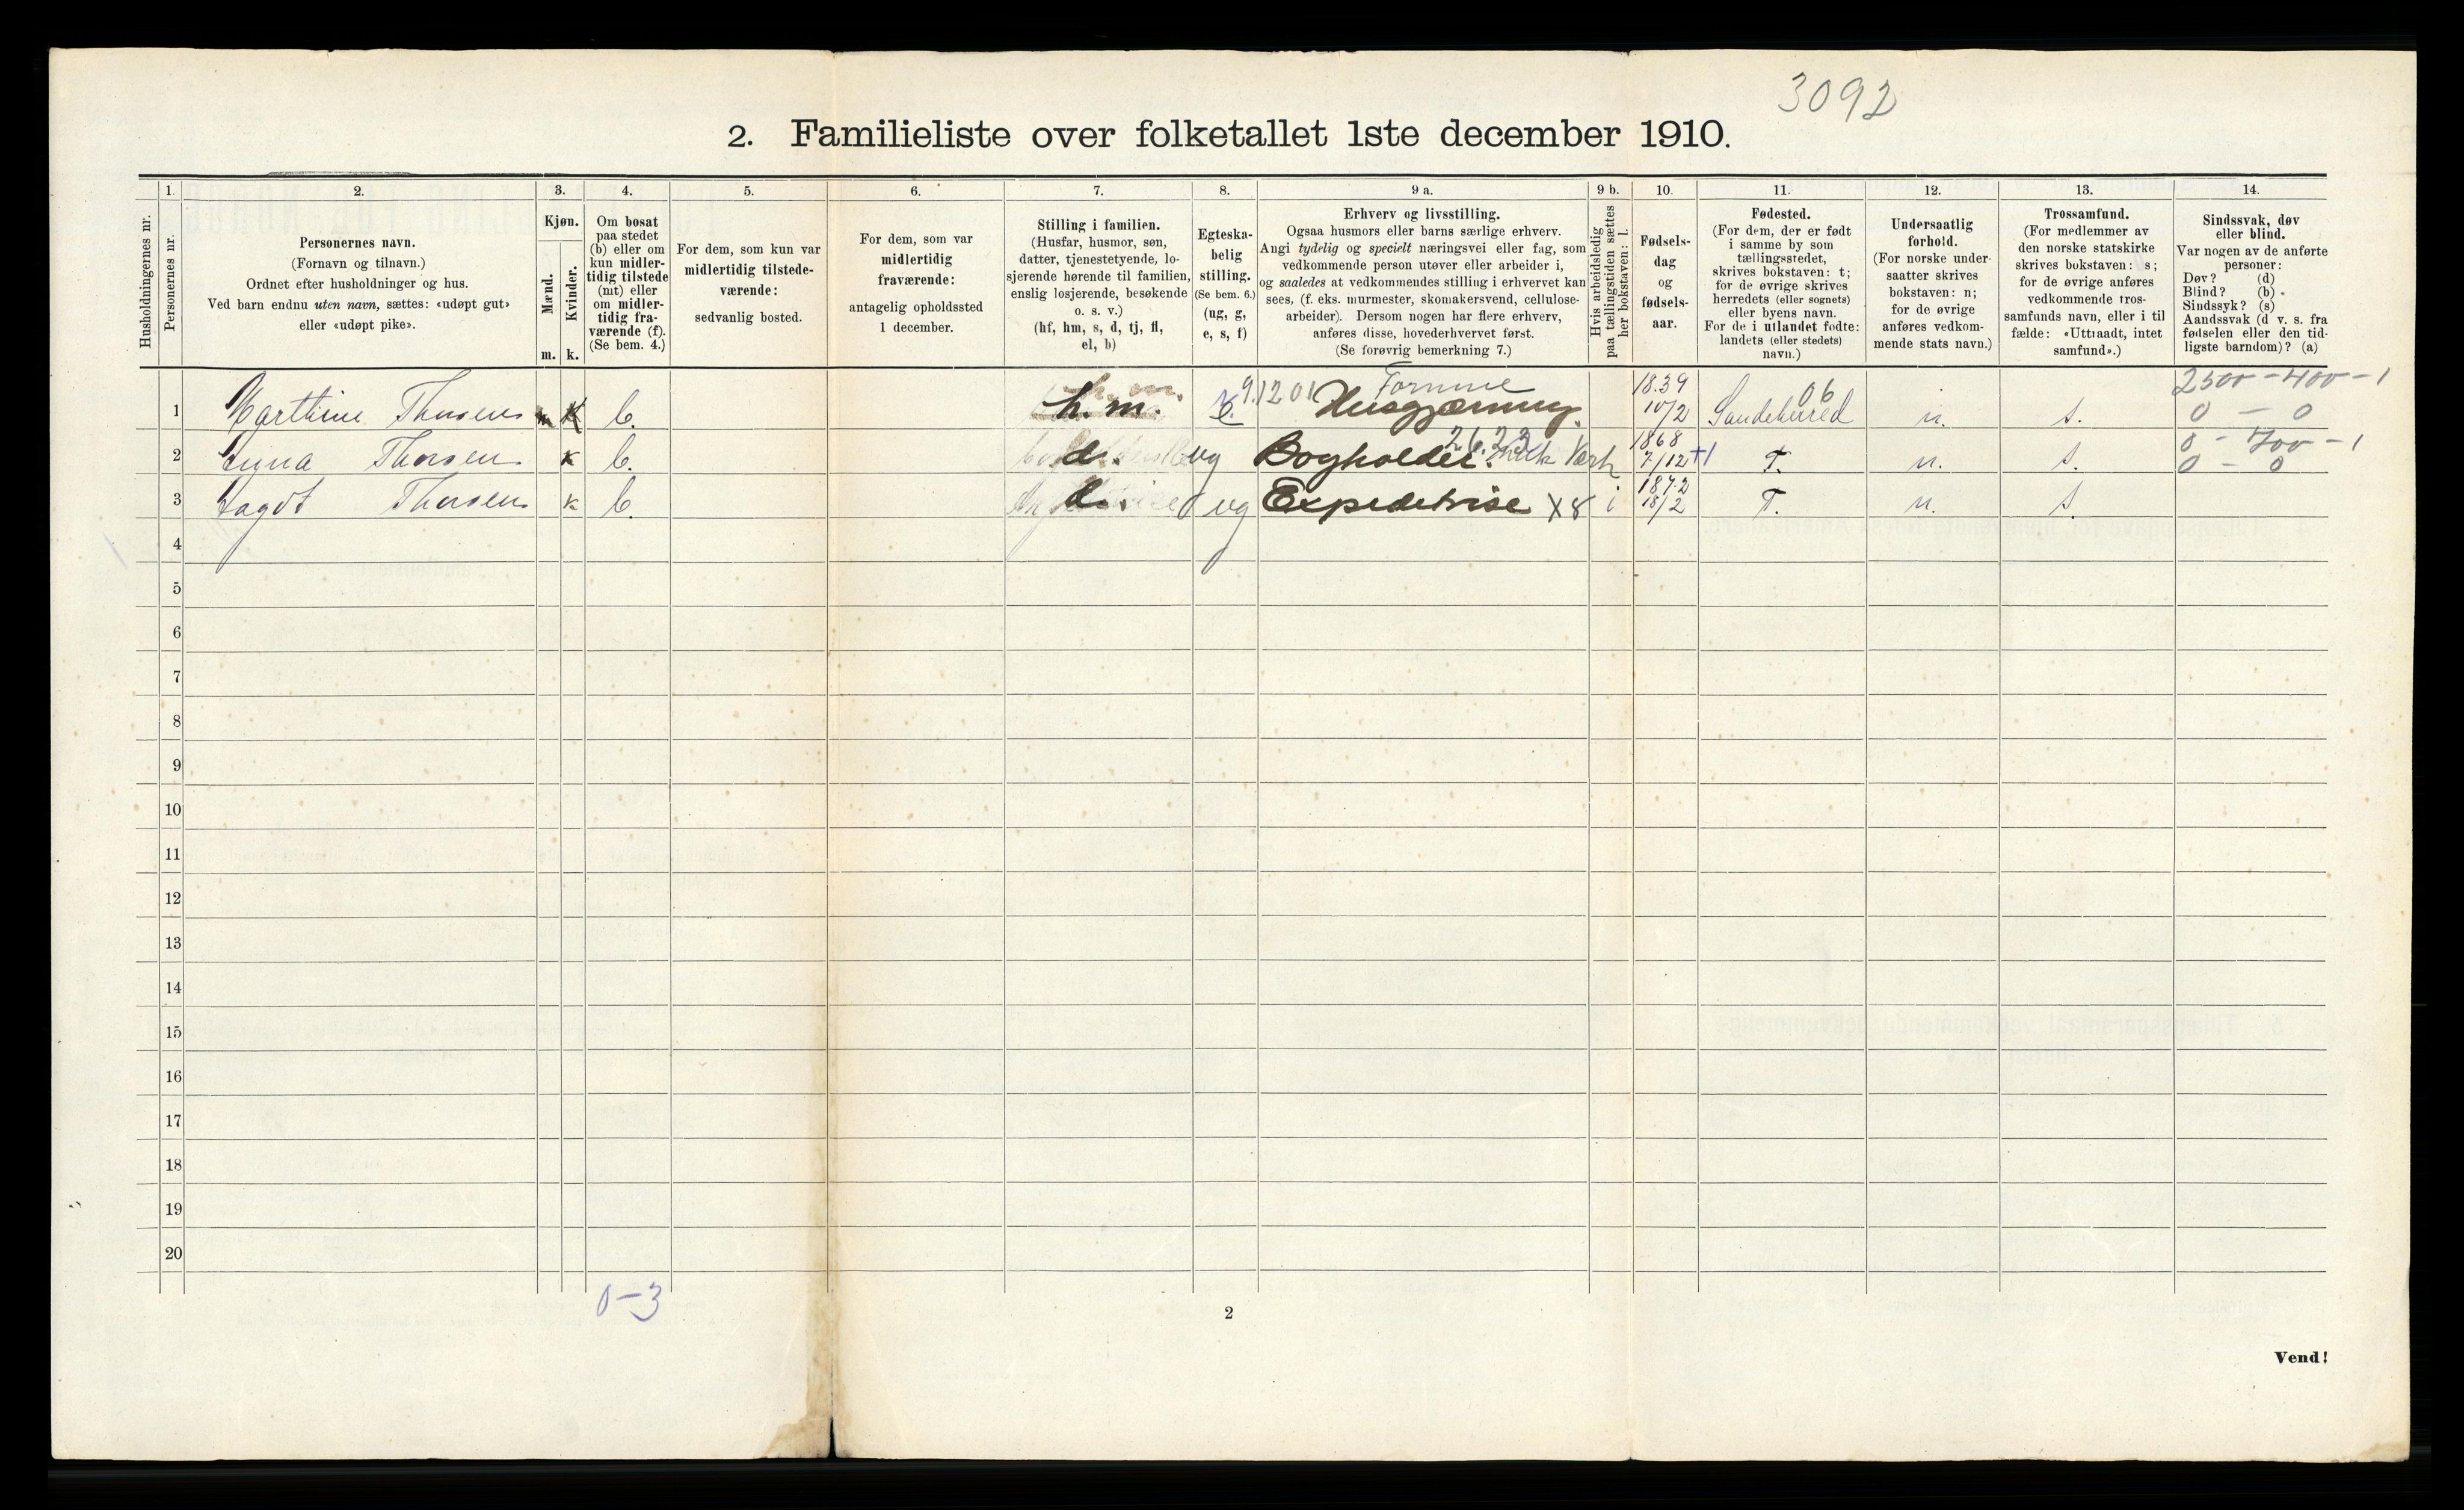 3092
2. Familieliste over folketallet 1ste december 1910.
1. 2. 3. 4. 5. 6. 7. 8. 9 a. 9 b. 10. 11. 12. 13. 14.
Husholdningernes nr.
Personernes nr.
Personernes navn.
(Fornavn og tilnavn.)
Ordnet efter husholdninger og hus.
Ved barn endnu uten navn, sættes: «udøpt gut»
eller «udøpt pike».
Kjøn.
Mænd.
Kvinder.
m. k.
Om bosat
paa stedet
(b) eller om
kun midler-
tidig tilstede
(mt) eller
om midler-
tidig fra-
værende (f).
(Se bem. 4.)
For dem, som kun var
midlertidig tilstede-
værende:
sedvanlig bosted.
For dem, som var
midlertidig
fraværende:
antagelig opholdssted
1 december.
Stilling i familien.
(Husfar, husmor, søn,
datter, tjenestetyende, lo-
sjerende hørende til familien,
enslig losjerende, besøkende
o. s. v.)
(hf, hm, s, d, tj, fl,
el, b)
Egteska-
belig
stilling.
(Se bem. 6.)
(ug, g,
e, s, f)
Erhverv og livsstilling.
Ogsaa husmors eller barns særlige erhverv.
Angi tydelig og specielt næringsvei eller fag, som
vedkommende person utøver eller arbeider i,
og saaledes at vedkommendes stilling i erhvervet kan
sees, (f. eks. murmester, skomakersvend, cellulose-
arbeider). Dersom nogen har flere erhverv,
anføres disse, hovederhvervet først.
(Se forøvrig bemerkning 7.)
Hvis arbeidsledig
paa tællingstiden sættes
her bokstaven: l.
Fødsels-
dag
og
fødsels-
aar.
Fødested.
(For dem, der er født
i samme by som
tællingsstedet,
skrives bokstaven: t;
for de øvrige skrives
herredets (eller sognets)
eller byens navn.
For de i utlandet fødte:
landets (eller stedets)
navn.)
Undersaatlig
forhold.
(For norske under-
saatter skrives
bokstaven: n;
for de øvrige
anføres vedkom-
mende stats navn.)
Trossamfund.
(For medlemmer av
den norske statskirke
skrives bokstaven: s;
for de øvrige anføres
vedkommende tros-
samfunds navn, eller i til
fælde: «Uttraadt, intet
samfund».)
Sindssvak, døv
eller blind.
Var nogen av de anførte
personer:
Døv? (d)
Blind? (b)
Sindssyk? (s)
Aandssvak (d v. s. fra
fødselen eller den tid-
ligste barndom)? (a)
h. m. 9.1201 Formue 1839 06 2500 - 400 - 1
1 Marthine Thorsen k b. h. m. Husgjærning. 10/2 Sandeherred n. s. 0 - 0
1868 0 - 700 - 1
2 Signa Thorsen k b. d. ug Bogholder. 7/12 +1 T. n. s. 0 - 0
1872
3 Thorsen k b. d. ug Expeditrise X8 i 18/2 T. n. s.
4
5
6
7
8
9
10
11
12
13
14
15
16
17
18
19
20
0-3
2
Vend!